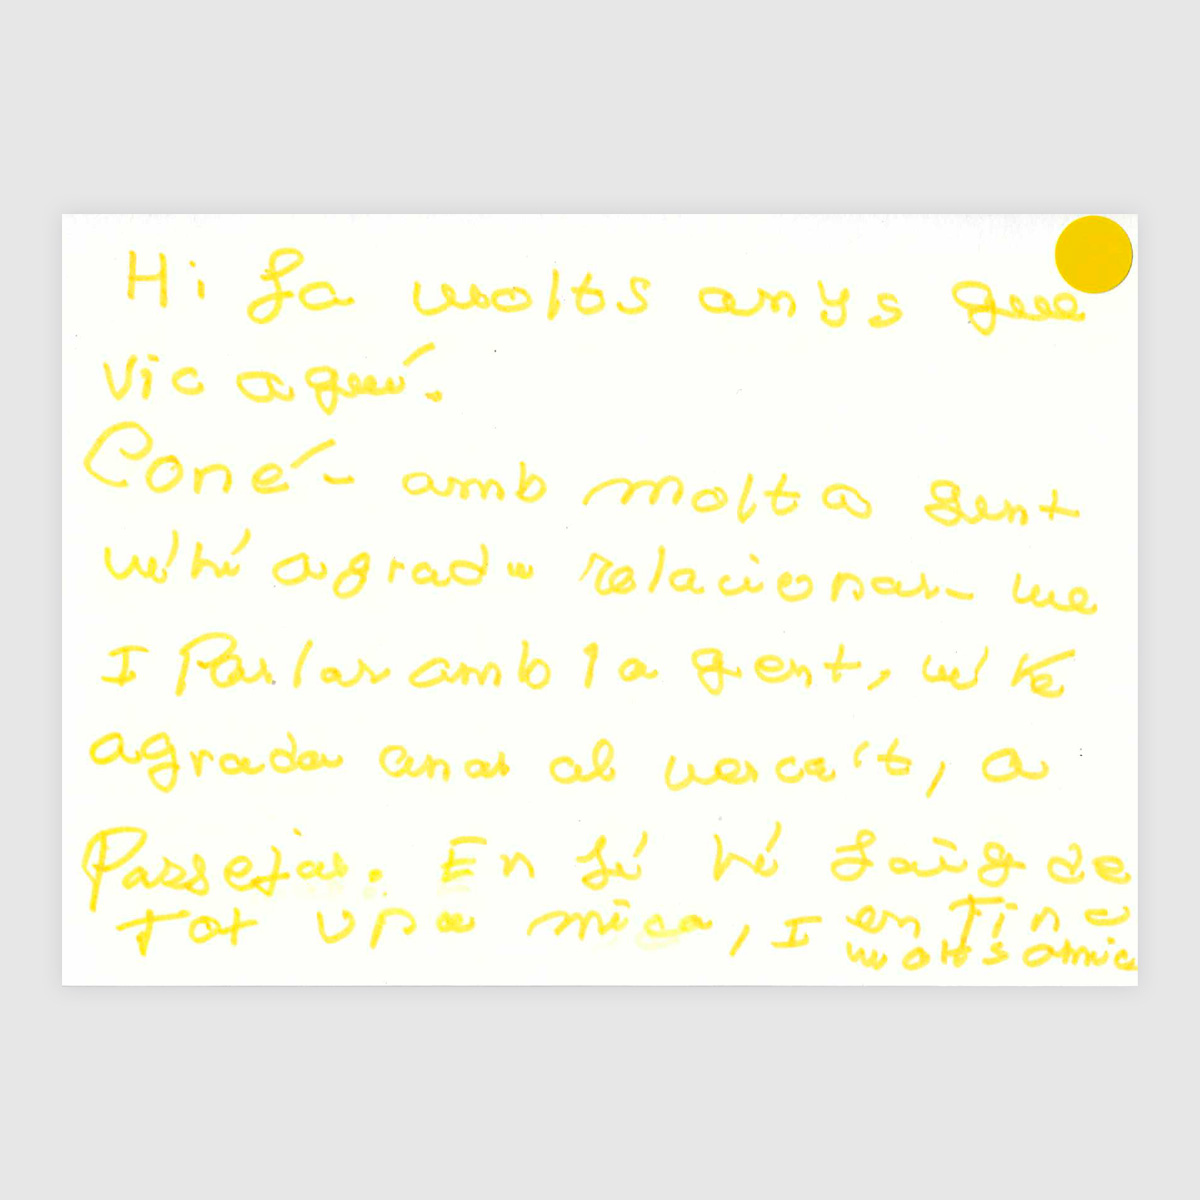 Hi fa molts anys que
vic aquí.
Coné- amb molta gent
m'hi agrada relacionar-me
I Parlar amb la gent, m'
agrada anar al mercat, a
Passejar. En fí hi faig de
Tot una mica, I en Tinc
molts amic